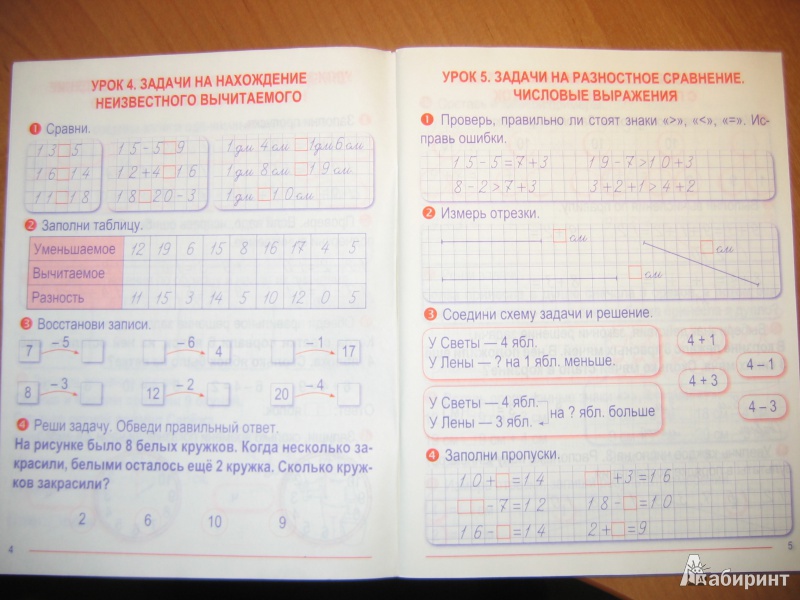 УРОК 4. ЗАДАЧИ НА НАХОЖДЕНИЕ
НЕИЗВЕСТНОГО ВЫЧИТАЕМОГО
1 Сравни.
13□5 15-5□9 1дм 4см□1дм6см
16□14 12+4□16 1дм 8см□19см
11□18 18□20-3 1дм□10см
2 Заполни таблицу.
Уменьшаемое 12 19 6 15 8 16 17 4 5
Вычитаемое
Разность 11 15 3 14 5 10 12 0 5
3 Восстанови записи.
7 – 5 □ □ – 6 4 □ – 1 17
8 – 3 □ 12 – 2 □ 20 – 4 □
4 Реши задачу. Обведи правильный ответ.
На рисунке было 8 белых кружков. Когда несколько за-
красили, белыми осталось ещё 2 кружка. Сколько круж-
ков закрасили?
2 6 10 9
4
УРОК 5. ЗАДАЧИ НА РАЗНОСТНОЕ СРАВНЕНИЕ.
ЧИСЛОВЫЕ ВЫРАЖЕНИЯ
1 Проверь, правильно ли стоят знаки «>», «<», «=». Ис-
правь ошибки.
15-5=7+3 19-7>10+3
8-2>7+3 3+2+1>4+2
2 Измерь отрезки.
□см
□см
□см
3 Соедини схему задачи и решение.
У Светы — 4 ябл.
У Лены — ? на 1 ябл. меньше.
4 + 1
4 – 1
4 + 3
4 – 3
У Светы — 4 ябл.
У Лены — 3 ябл.
на ? ябл. больше
4 Заполни пропуски.
10+□=14 □□+3=16
□□-7=12 18-□=10
16-□=14 2+□=9
5
Лабиринт